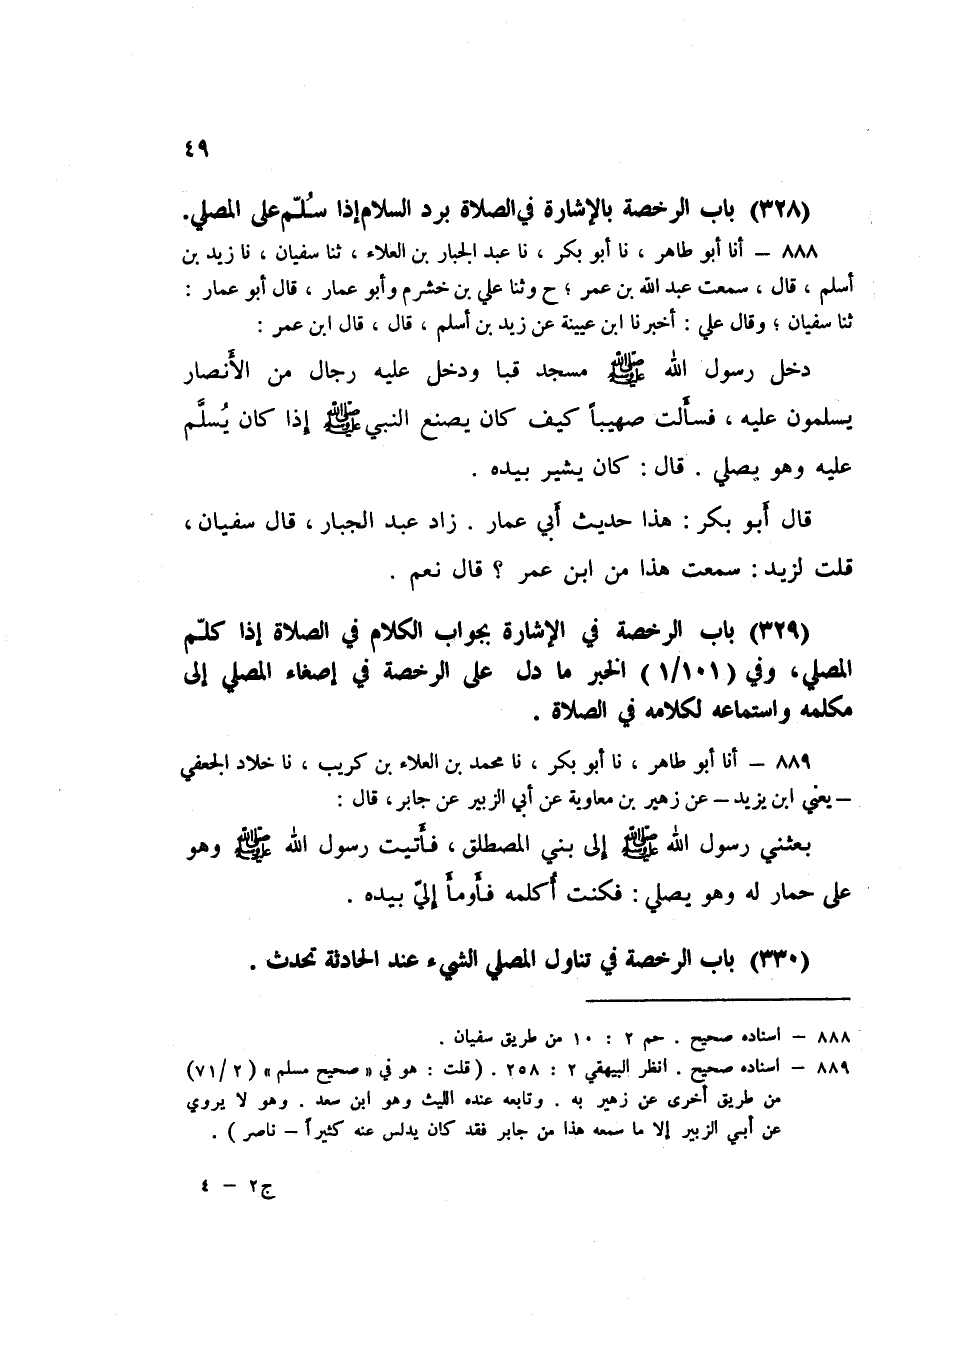 ٤٩
(٣٢٨) باب الرخصة بالإشارة في الصلاة برد السلام إذا سُلّم على المصلي.
٨٨٨ – أنا أبو طاهر ، نا أبو بكر ، نا عبد الجبار بن العلاء ، ثنا سفيان ، نا زيد بن
أسلم ، قال ، سمعت عبد الله بن عمر ؛ ح وثنا علي بن خشرم وأبو عمار ، قال أبو عمار :
ثنا سفيان ؛ وقال علي : أخبرنا ابن عيينة عن زيد بن أسلم ، قال ، قال ابن عمر :
دخل رسول الله ﷺ مسجد قبا ودخل عليه رجال من الأَنصار
يسلمون عليه ، فسأَلت صهيباً كيف كان يصنع النبي ﷺ إِذا كان يُسلَّم
عليه وهو يصلي . قال : كان يشير بيده .
قال أَبو بكر : هذا حديث أَبي عمار . زاد عبد الجبار ، قال سفيان ،
قلت لزيد : سمعت هذا من ابن عمر ؟ قال نعم .
(٣٢٩) باب الرخصة في الإشارة بجواب الكلام في الصلاة إذا كلّم
المصلي، وفي (١/١٠١) الخبر ما دل على الرخصة في إصغاء المصلي إلى
مكلمه واستماعه لكلامه في الصلاة .
٨٨٩ – أنا أبو طاهر ، نا أبو بكر ، نا محمد بن العلاء بن كريب ، نا خلاد الجعفي
– يعني ابن يزيد – عن زهير بن معاوية عن أبي الزبير عن جابر، قال :
بعثني رسول الله ﷺ إِلى بني المصطلق، فأَتيت رسول الله ﷺ وهو
على حمار له وهو يصلي : فكنت أُكلمه فأَومأَ إِليّ بيده .
(٣٣٠) باب الرخصة في تناول المصلي الشيء عند الحادثة تحدث .
٨٨٨ – اسناده صحيح . حم ٢ : ١٠ من طريق سفيان .
٨٨٩ – اسناده صحيح . انظر البيهقي ٢ : ٢٥٨ . ( قلت : هو في « صحيح مسلم » ( ٧١/٢)
من طريق أخرى عن زهير به . وتابعه عنده الليث وهو ابن سعد . وهو لا يروي
عن أبي الزبير إلا ما سمعه هذا من جابر فقد كان يدلس عنه كثيراً – ناصر ) .
ج٢ – ٤